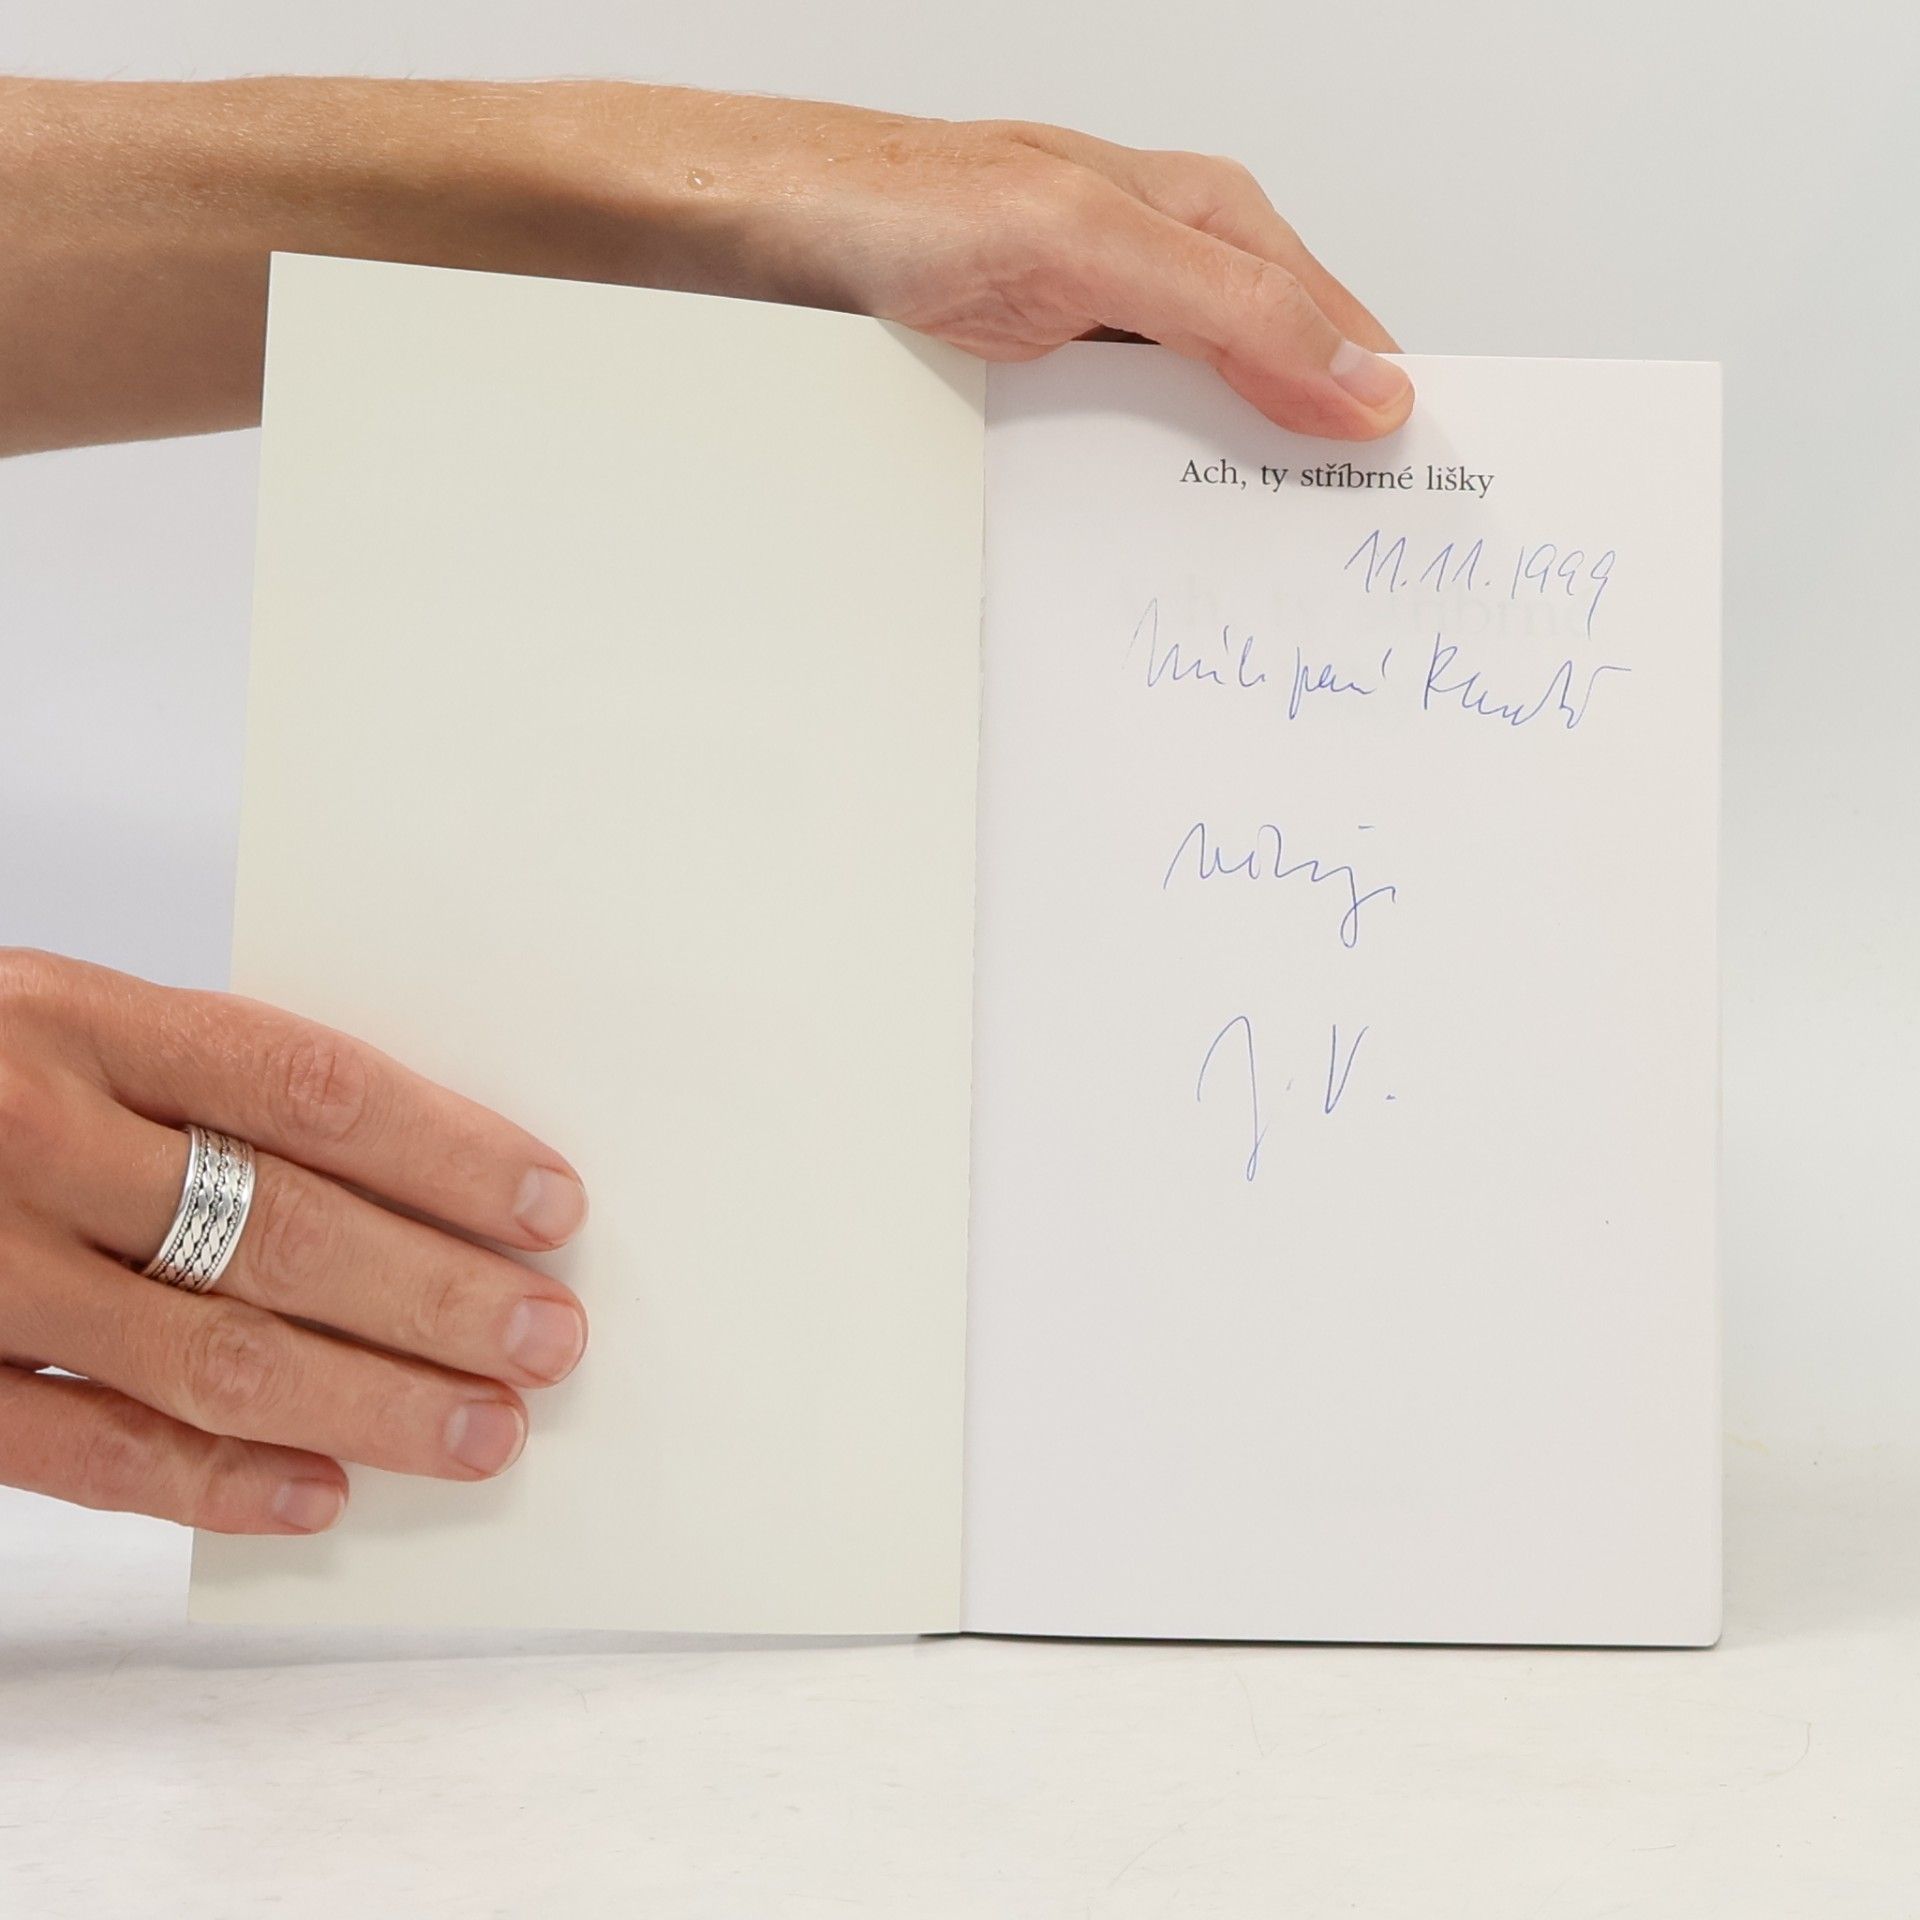 Ach, ty stříbrné lišky
11.11.1999
Milé paní
věnuje
J. V.